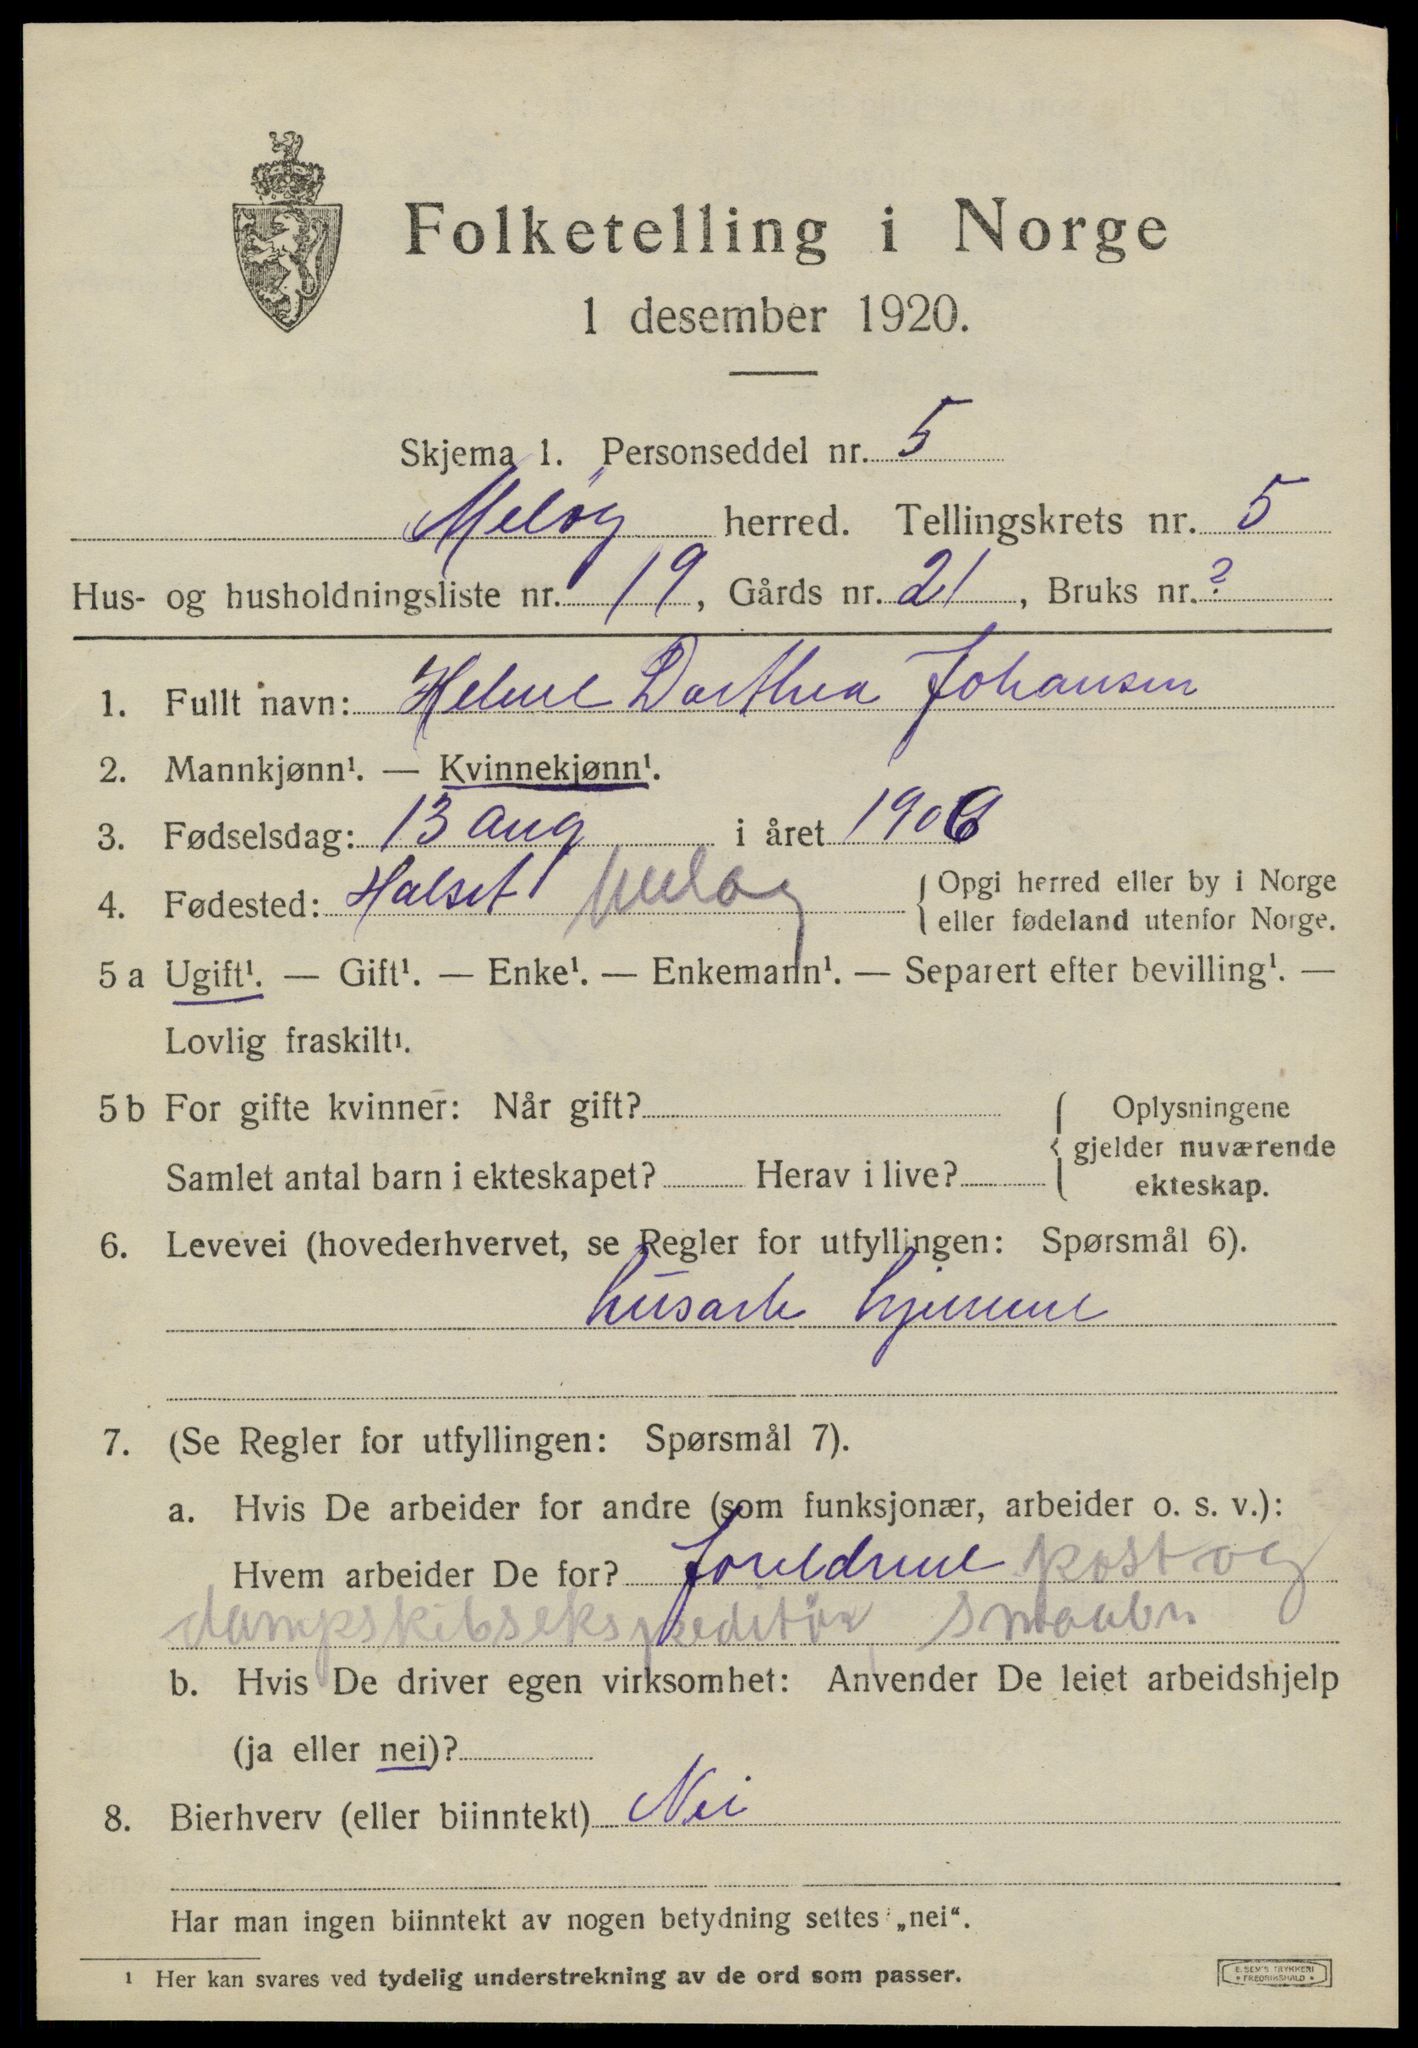 Folketelling i Norge
1 desember 1920.
Skjema 1. Personseddel nr. 5
Meløy herred. Tellingskrets nr. 5
Hus- og husholdningsliste nr. 19, Gårds nr. 21, Bruks nr. ?
1. Fullt navn: Helene Dorthea Johansen
2. Mannkjønn¹. — Kvinnekjønn¹.
3. Fødselsdag: 13 aug i året 1906
4. Fødested: Halset Meløy {Opgi herred eller by i Norge
eller fødeland utenfor Norge.
5 a Ugift¹. — Gift¹. — Enke¹. — Enkemann¹. — Separert efter bevilling¹. —
Lovlig fraskilt¹.
5 b For gifte kvinner: Når gift? { Oplysningene
gjelder nuværende
Samlet antal barn i ekteskapet? Herav i live? ekteskap.
6. Levevei (hovederhvervet, se Regler for utfyllingen: Spørsmål 6).
husarb hjemme
7. (Se Regler for utfyllingen: Spørsmål 7).
a. Hvis De arbeider for andre (som funksjonær, arbeider o. s. v.):
Hvem arbeider De for? foreldrene post og
dampskibsekspeditør, smaabr
b. Hvis De driver egen virksomhet: Anvender De leiet arbeidshjelp
(ja eller nei)?
8. Bierhverv (eller biinntekt) Nei
Har man ingen biinntekt av nogen betydning settes „nei“.
¹ Her kan svares ved tydelig understrekning av de ord som passer.
E. SEM'S TRYKKERI
• FREDRIKSHALD •